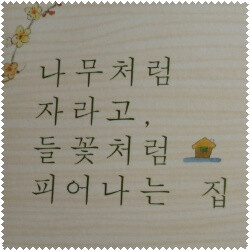 나무처럼
자라고,
들꽃처럼
피어나는 집